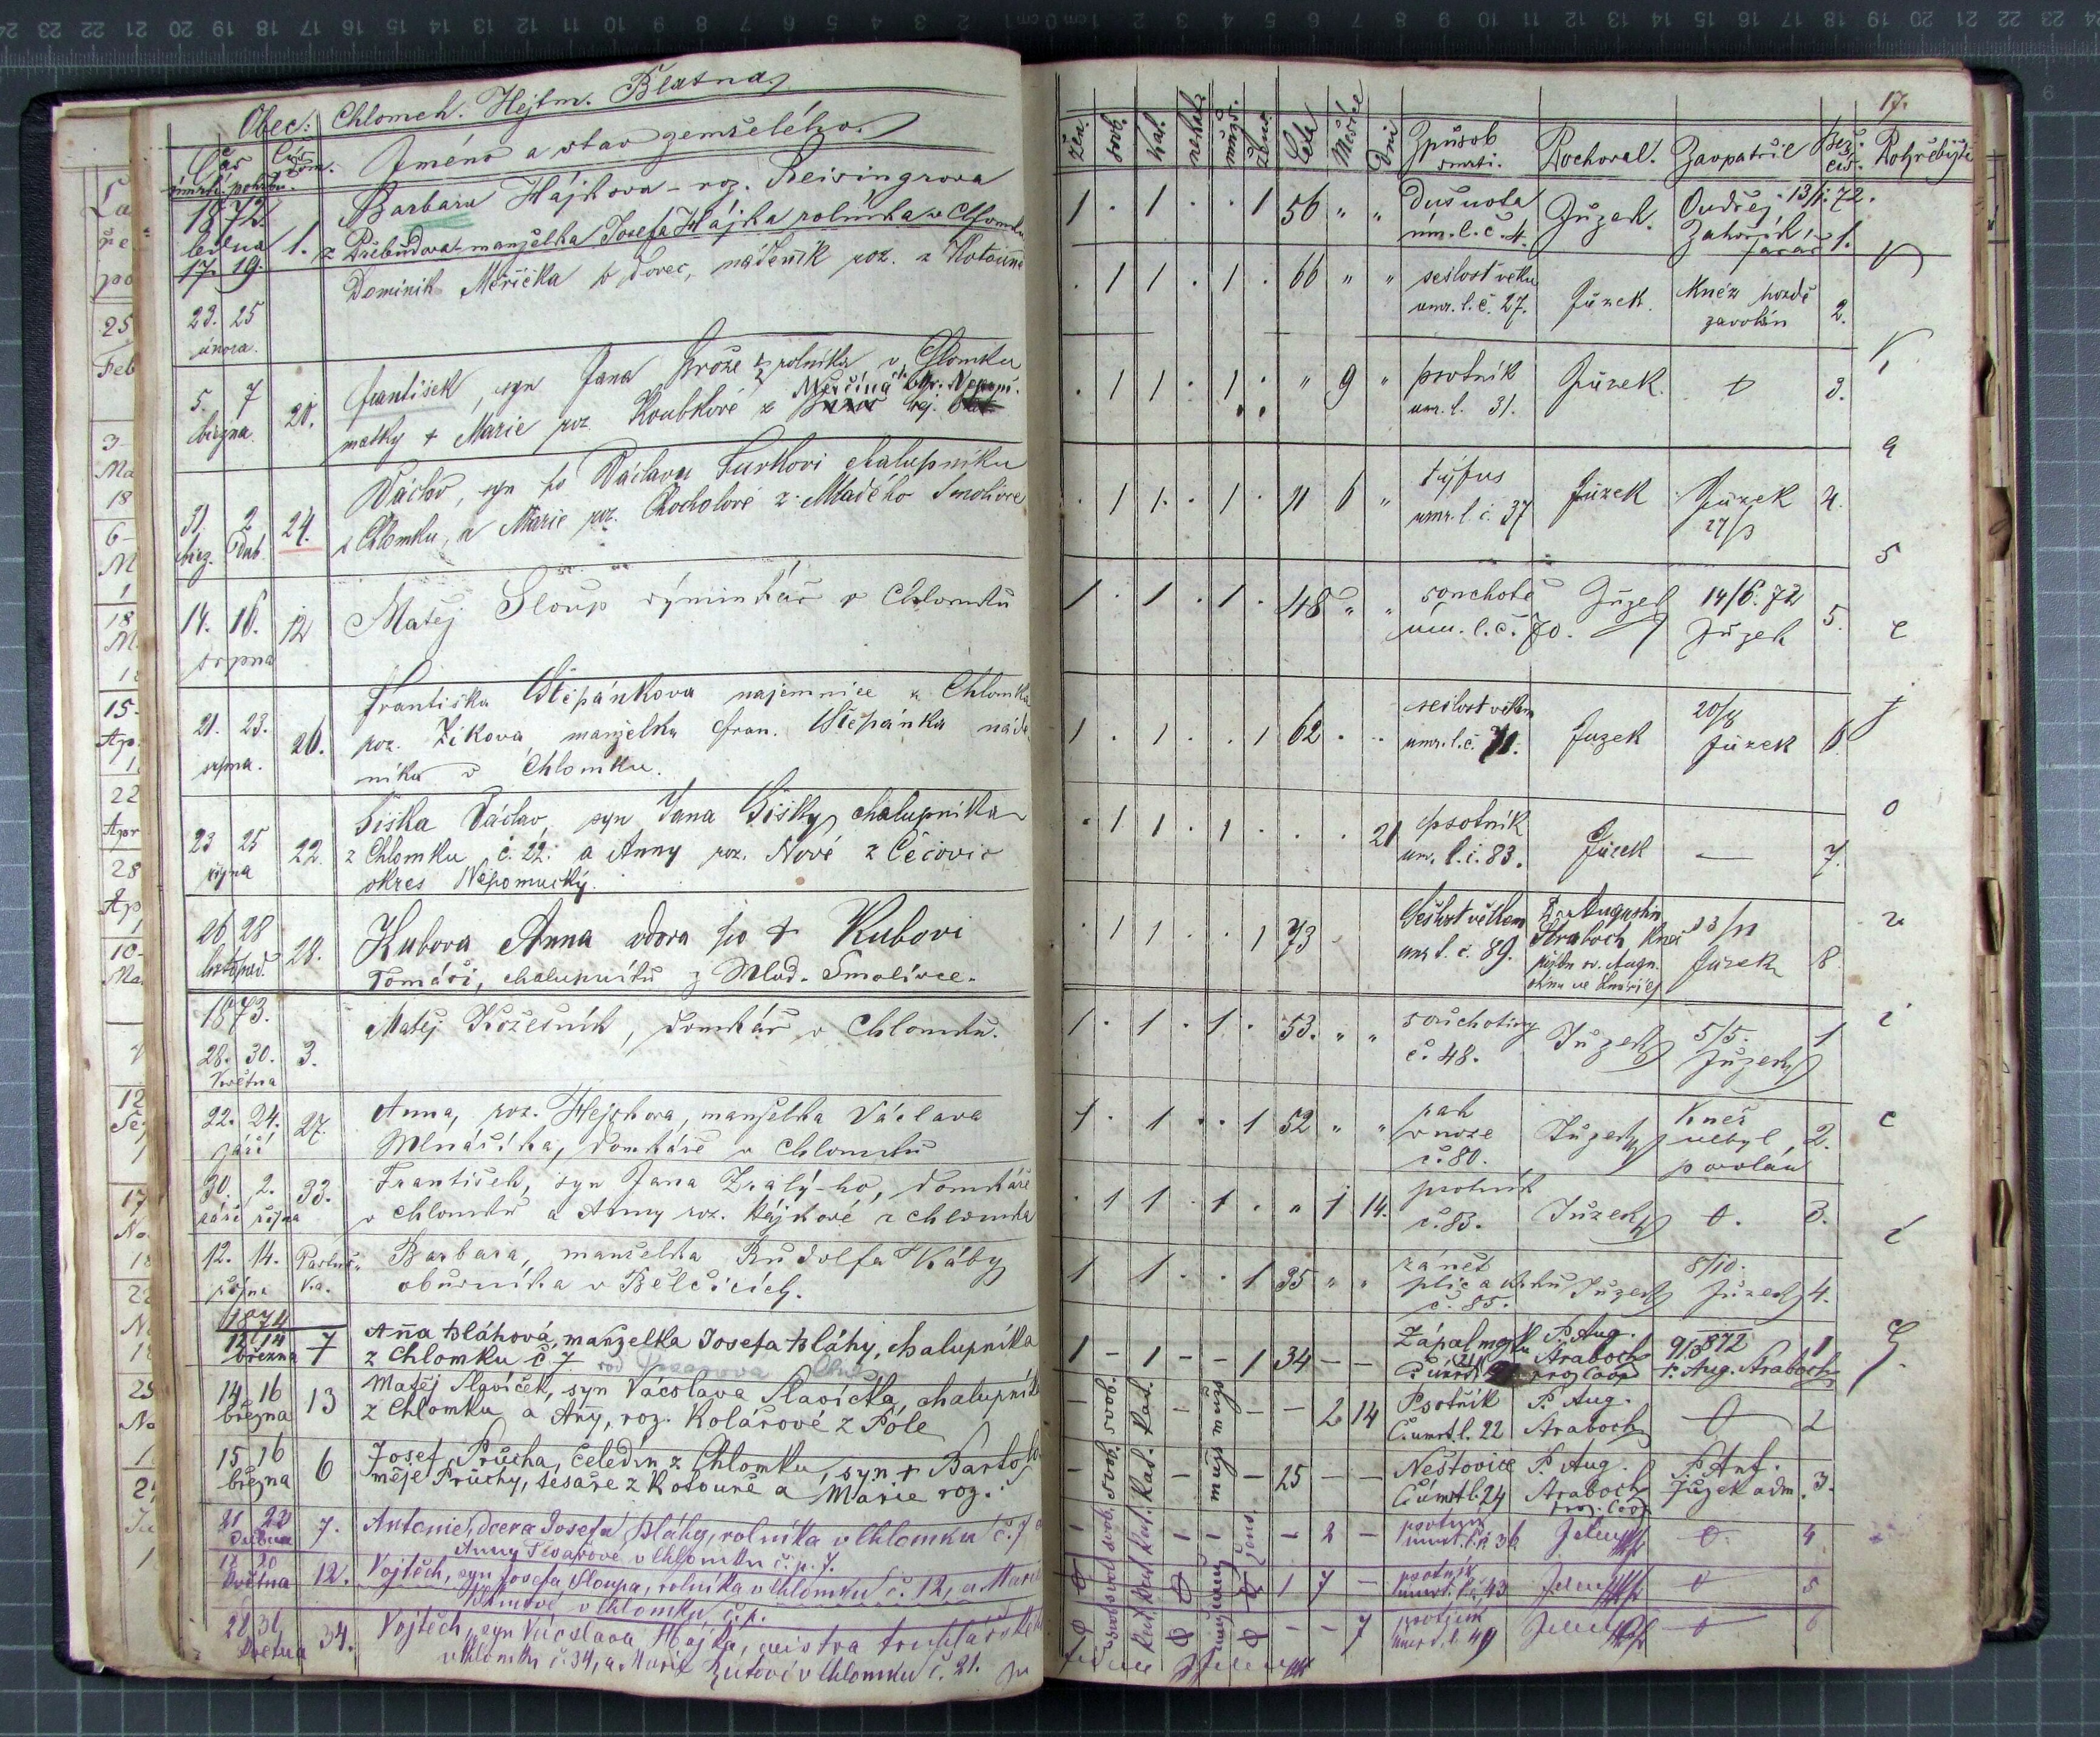 Obec: Chlomek. Hejtm. Blatna
Čas úmrtí. pohřbu. Čís. dom. Jméno a stav zemřelého.
1872. ledna 17. 19. 1. Barbara Hájkova - roz. Reisingrova
z Předbudova - manželka Josefa Hájka rolníka v Chlomku
23. 25 února. Dominik Měřička, nádeník roz. z Kotouně
5. 7 března 20. František, syn Jana rolníka v Chlomku
matky † Marie roz. Koubkové z Měrčína okr. Nepom.
31. břez. 2 Dub. 24. Václav, syn po Václavu Turkovi chalupníku
z Chlomku, a Marie roz. Chocholové z Mladého Smolivce
14. 16. srpna 12 Matěj Sloup výminkář v Chlomku
21. 23. srpna. 26. Františka Štěpánkova najemnice z Chlomku
roz. Zíkova, manželka Fran. Štěpánka náde-
níka v Chlomku.
23 25 října 22. Šiška Václav, syn Jana Šišky, chalupníka
z Chlomku č. 22. a Anny roz. Nové z Čečovic
okres Nepomucký.
26 28 listopad. 28. Kubova Anna vdova po † Kubovi
Tomáši, chalupníku z Mlad. Smolivce.
1873. 28. 30. Května 3. Matěj Kožešník, domkář v Chlomku.
22. 24. září 27. Anna, roz. Hejskova, manželka Václava
Mlnáříka, domkáře v Chlomku
30. září 2. října 33. František, syn Jana Zralý-ho, domkáře
v Chlomku a Anny roz. Hájkové z Chlomku
12. 14. října Barbara, manželka Rudolfa Káby
oburníka v Bělčicích.
1874 12 14 března 7 Anna Bláhová, manželka Josefa Bláhy, chalupníka
z Chlomku č. 7
14 16 března 13 Matěj Slavíček, syn Václava Slavíčka, chalupníka
z Chlomku a Anny, roz. Kolářové z Póle
15 16 března 6 Josef Průcha, čeledín z Chlomku, syn † Barto-
měje Průchy, tesaře z Kotouně a Marie roz.
21 22 Dubna 7. Antonie, dcera Josefa Bláhy, rolníka v Chlomku č. 7
Anny Tesařové v Chlomku č. p. 7.
18 20 Května 12. Vojtěch, syn Josefa Sloupa, rolníka v Chlomku č. 12, a Marie
v Chlomku č. p.
31 Května 34. Vojtěch, syn Václava Hájka, mistra truhlářského
v Chlomku č. 34, a Marie v Chlomku č. 21.
17.
žen. svob. kat. nekat. mužs. žens. Leta Měsíce Dni Způsob smrti. Pochoval. Zaopatřil Běž. čís. Pohřebiště
1 . 1 . . 1 56 " " Dusnota úm. l. č. 4. Jůzek. Ondřej Zahorík farář 13/1. 72. 1.
. 1 1 . 1 . 66 " " sešlost věku úmr. l. č. 27. Jůzek. Kněz pozdě zavolán 2.
. 1 1 . 1 . " 9 " psotník úmr. l. 31. Jůzek. 3.
. 1 1. . 1 . 11 6 " týfus úmr. l. č. 37 Jůzek Jůzek 27/3 4.
1 . 1 . 1 . 48 " " souchotě úm. l. č. 70. Jůzek 14/6. 72 Jůzek 5.
1 . 1 . . 1 62 . . sešlost věkem úmr. l. č. 71. Jůzek 20/8 Jůzek 6.
. 1 1 . 1 . . . 21 psotník úm. l. č. 83. Jůzek — 7.
. 1 1 . . 1 73 Sešlost věkem úmr l. č. 89. P. Augustin Araboch kněz 23/11 Jůzek 8.
1 . 1 . 1 . 53. " " souchotiny č. 48. Jůzek 5/5. Jůzek 1
1 . 1 . . 1 52 " " pak v noze č. 80. Jůzek Kněz nebyl povolán 2.
. 1 1 . 1 . " 1 14. psotník č. 83. Jůzek 0. 3.
1 1 . . 1 35 " " zánět plic a č. 85. Jůzek 8/10. Jůzek 4.
1 - 1 - - 1 34 - - Zápal mozku P. Aug. Araboch 9/3 872 P. Aug. Araboch 1
- svob. kat. - mužs - - 2 14 Psotník Č. úmrt. l. 22 P. Aug. Araboch 0 2
- svob. kat. - mužs - 25 - - Neštovice Č. úmrt l. 24 P. Aug. Araboch P. Ant. Jůzek adm. 3.
- svob. kat. - - žens - 2 - psotník úmrt. l. č. 36 0. 4
0 svob kat 0 0 1 7 - psotník úmrt. l. č. 43 0 5
0 svob kat 0 0 - - 7 psotník úmrt. l. 49 0 6